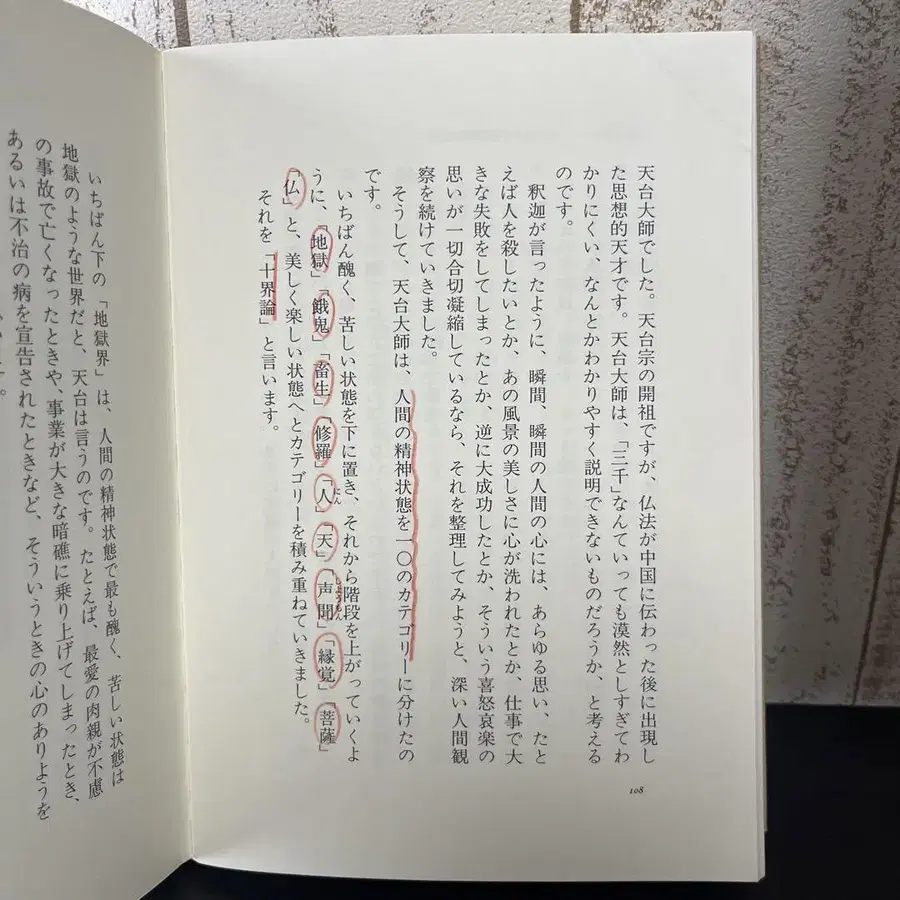 天台大師でした。天台宗の開祖ですが、仏法が中国に伝わった後に出現し
た思想的天才です。天台大師は、「三千」なんていっても漠然としすぎてわ
かりにくい、なんとかわかりやすく説明できないものだろうか、と考える
のです。
釈迦が言ったように、瞬間、瞬間の人間の心には、あらゆる思い、たと
えば人を殺したいとか、あの風景の美しさに心が洗われたとか、仕事で大
きな失敗をしてしまったとか、逆に大成功したとか、そういう喜怒哀楽の
思いが一切合切凝縮しているなら、それを整理してみようと、深い人間観
察を続けていきました。
そうして、天台大師は、人間の精神状態を一〇のカテゴリーに分けたの
です。
いちばん醜く、苦しい状態を下に置き、それから階段を上がっていくよ
うに、「地獄」「餓鬼」「畜生」「修羅」「人」「天」「声聞」「縁覚」「菩薩」
「仏」と、美しく楽しい状態へとカテゴリーを積み重ねていきました。
それを「十界論」と言います。
108
いちばん下の「地獄界」は、人間の精神状態で最も醜く、苦しい状態は
地獄のような世界だと、天台は言うのです。たとえば、最愛の肉親が不慮
の事故で亡くなったときや、事業が大きな暗礁に乗り上げてしまったとき、
あるいは不治の病を宣告されたときなど、そういうときの心のありようを